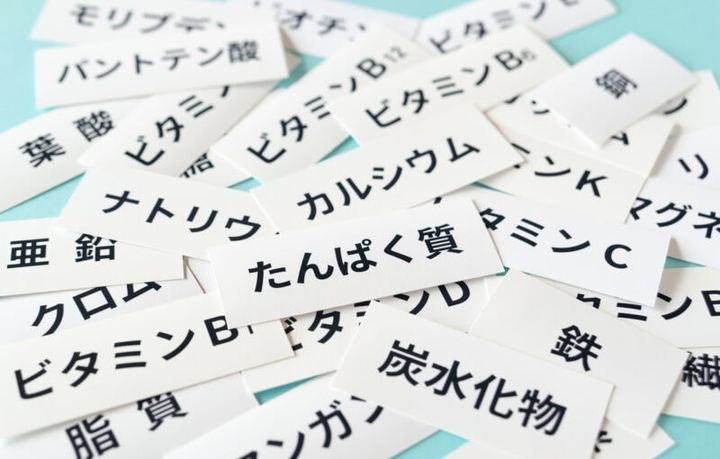 モリブデン
ビオチン
ビタミン
パントテン酸
ビタミンB12
ビタミンB6
銅
葉酸
ビタミ
糖
カルシウム
ンK
リ
ナトリウ
マグネ
亜鉛
たんぱく質
タミンC
クロム
ビタミンB
タミンD
ミンE
鉄
繊
炭水化物
脂質
ンガン